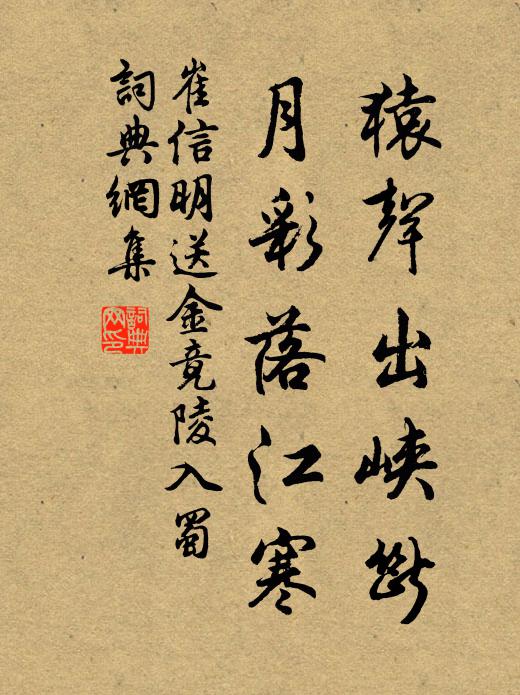 猿聲出峽斷
月彩落江寒
崔信明送金竟陵入蜀
詞典網集
詞典网印